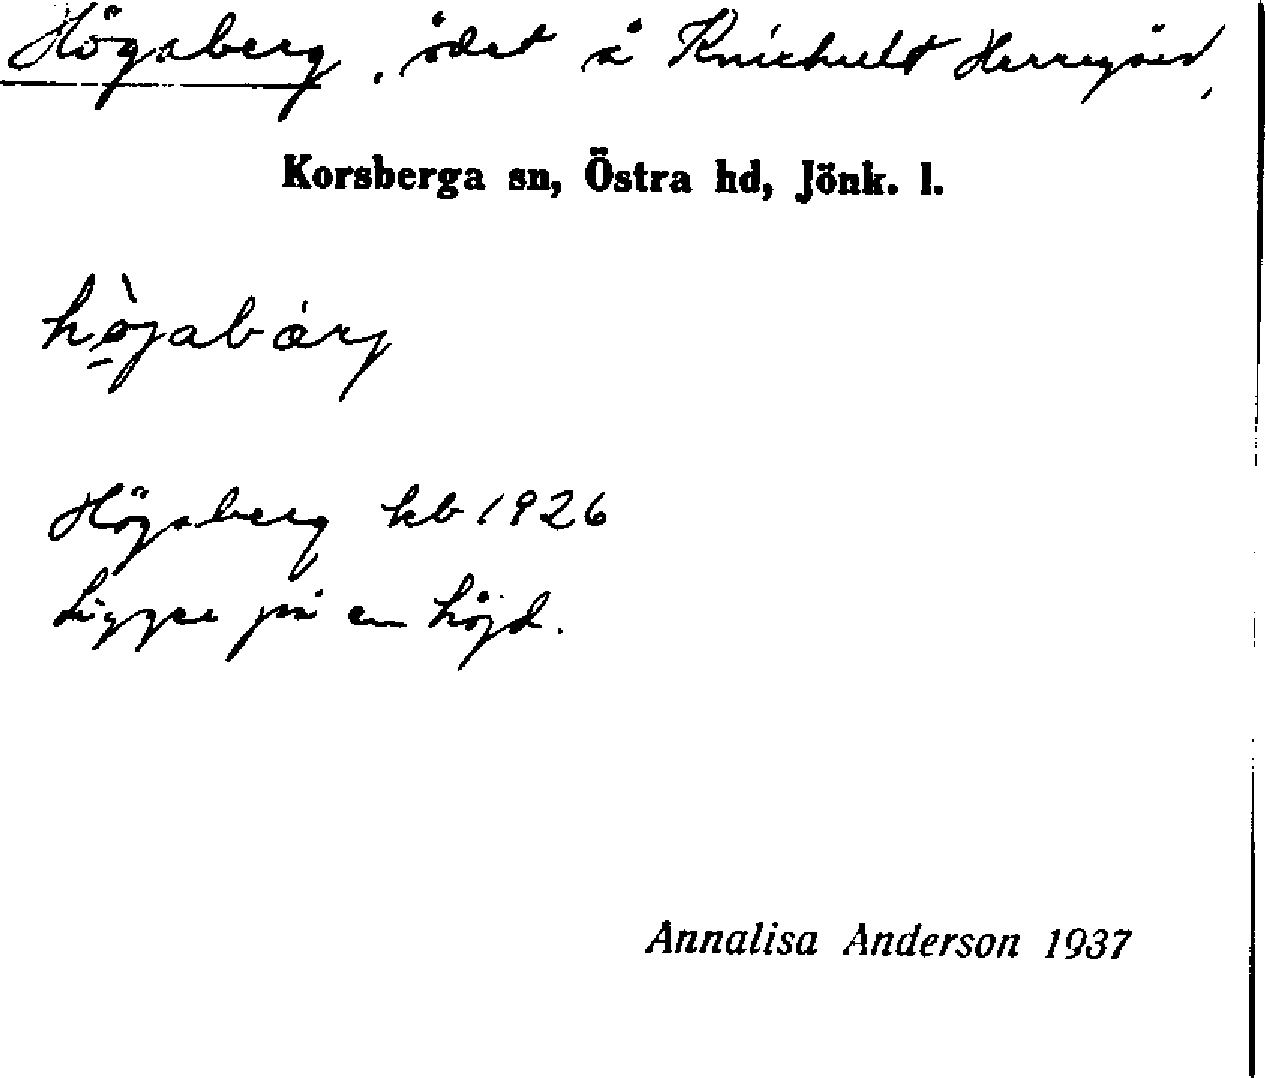 Högaberg, ödet å Knickult Herregård,
Korsberga sn, Östra hd, Jönk. l.
hö̀jabárj
Högaberg kb 1926
Ligger på en höjd.
Annalisa Anderson 1937